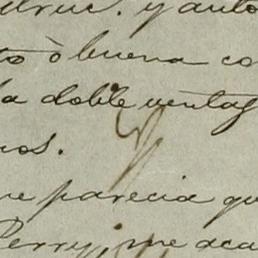 y auto
to ò buena co
la doble ventag
nos.
re parecia qu
Perry, me aca